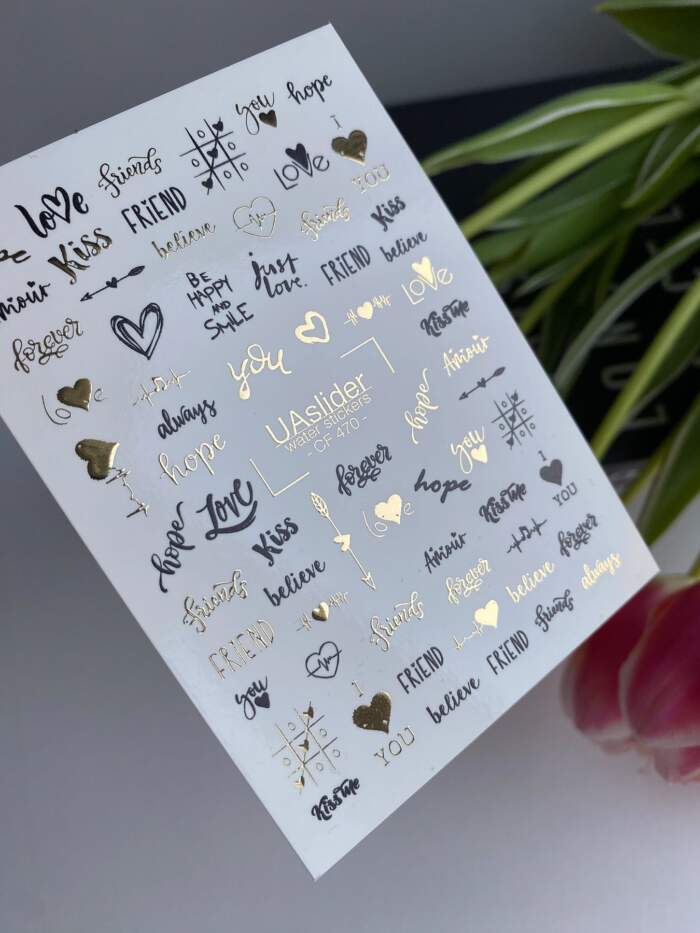 you
hope
friends
LOVE
I
YOU
love
FRiEND
Kiss
believe
friends
Kiss
Amour
BE
HAPPY
AND
SMiLE
just
love.
FRiEND
believe
LOVE
forever
you
Kiss me
Amour
love
always
UAslider
water stickers
- CF 470 -
hope
hope
forever
you
I
YOU
hope
Love
Kiss
love
hope
Kiss me
forever
friends
believe
Amour
forever
believe
always
FRiEND
friends
FRiEND
FRiEND
friends
you
I
YOU
believe
Kiss me